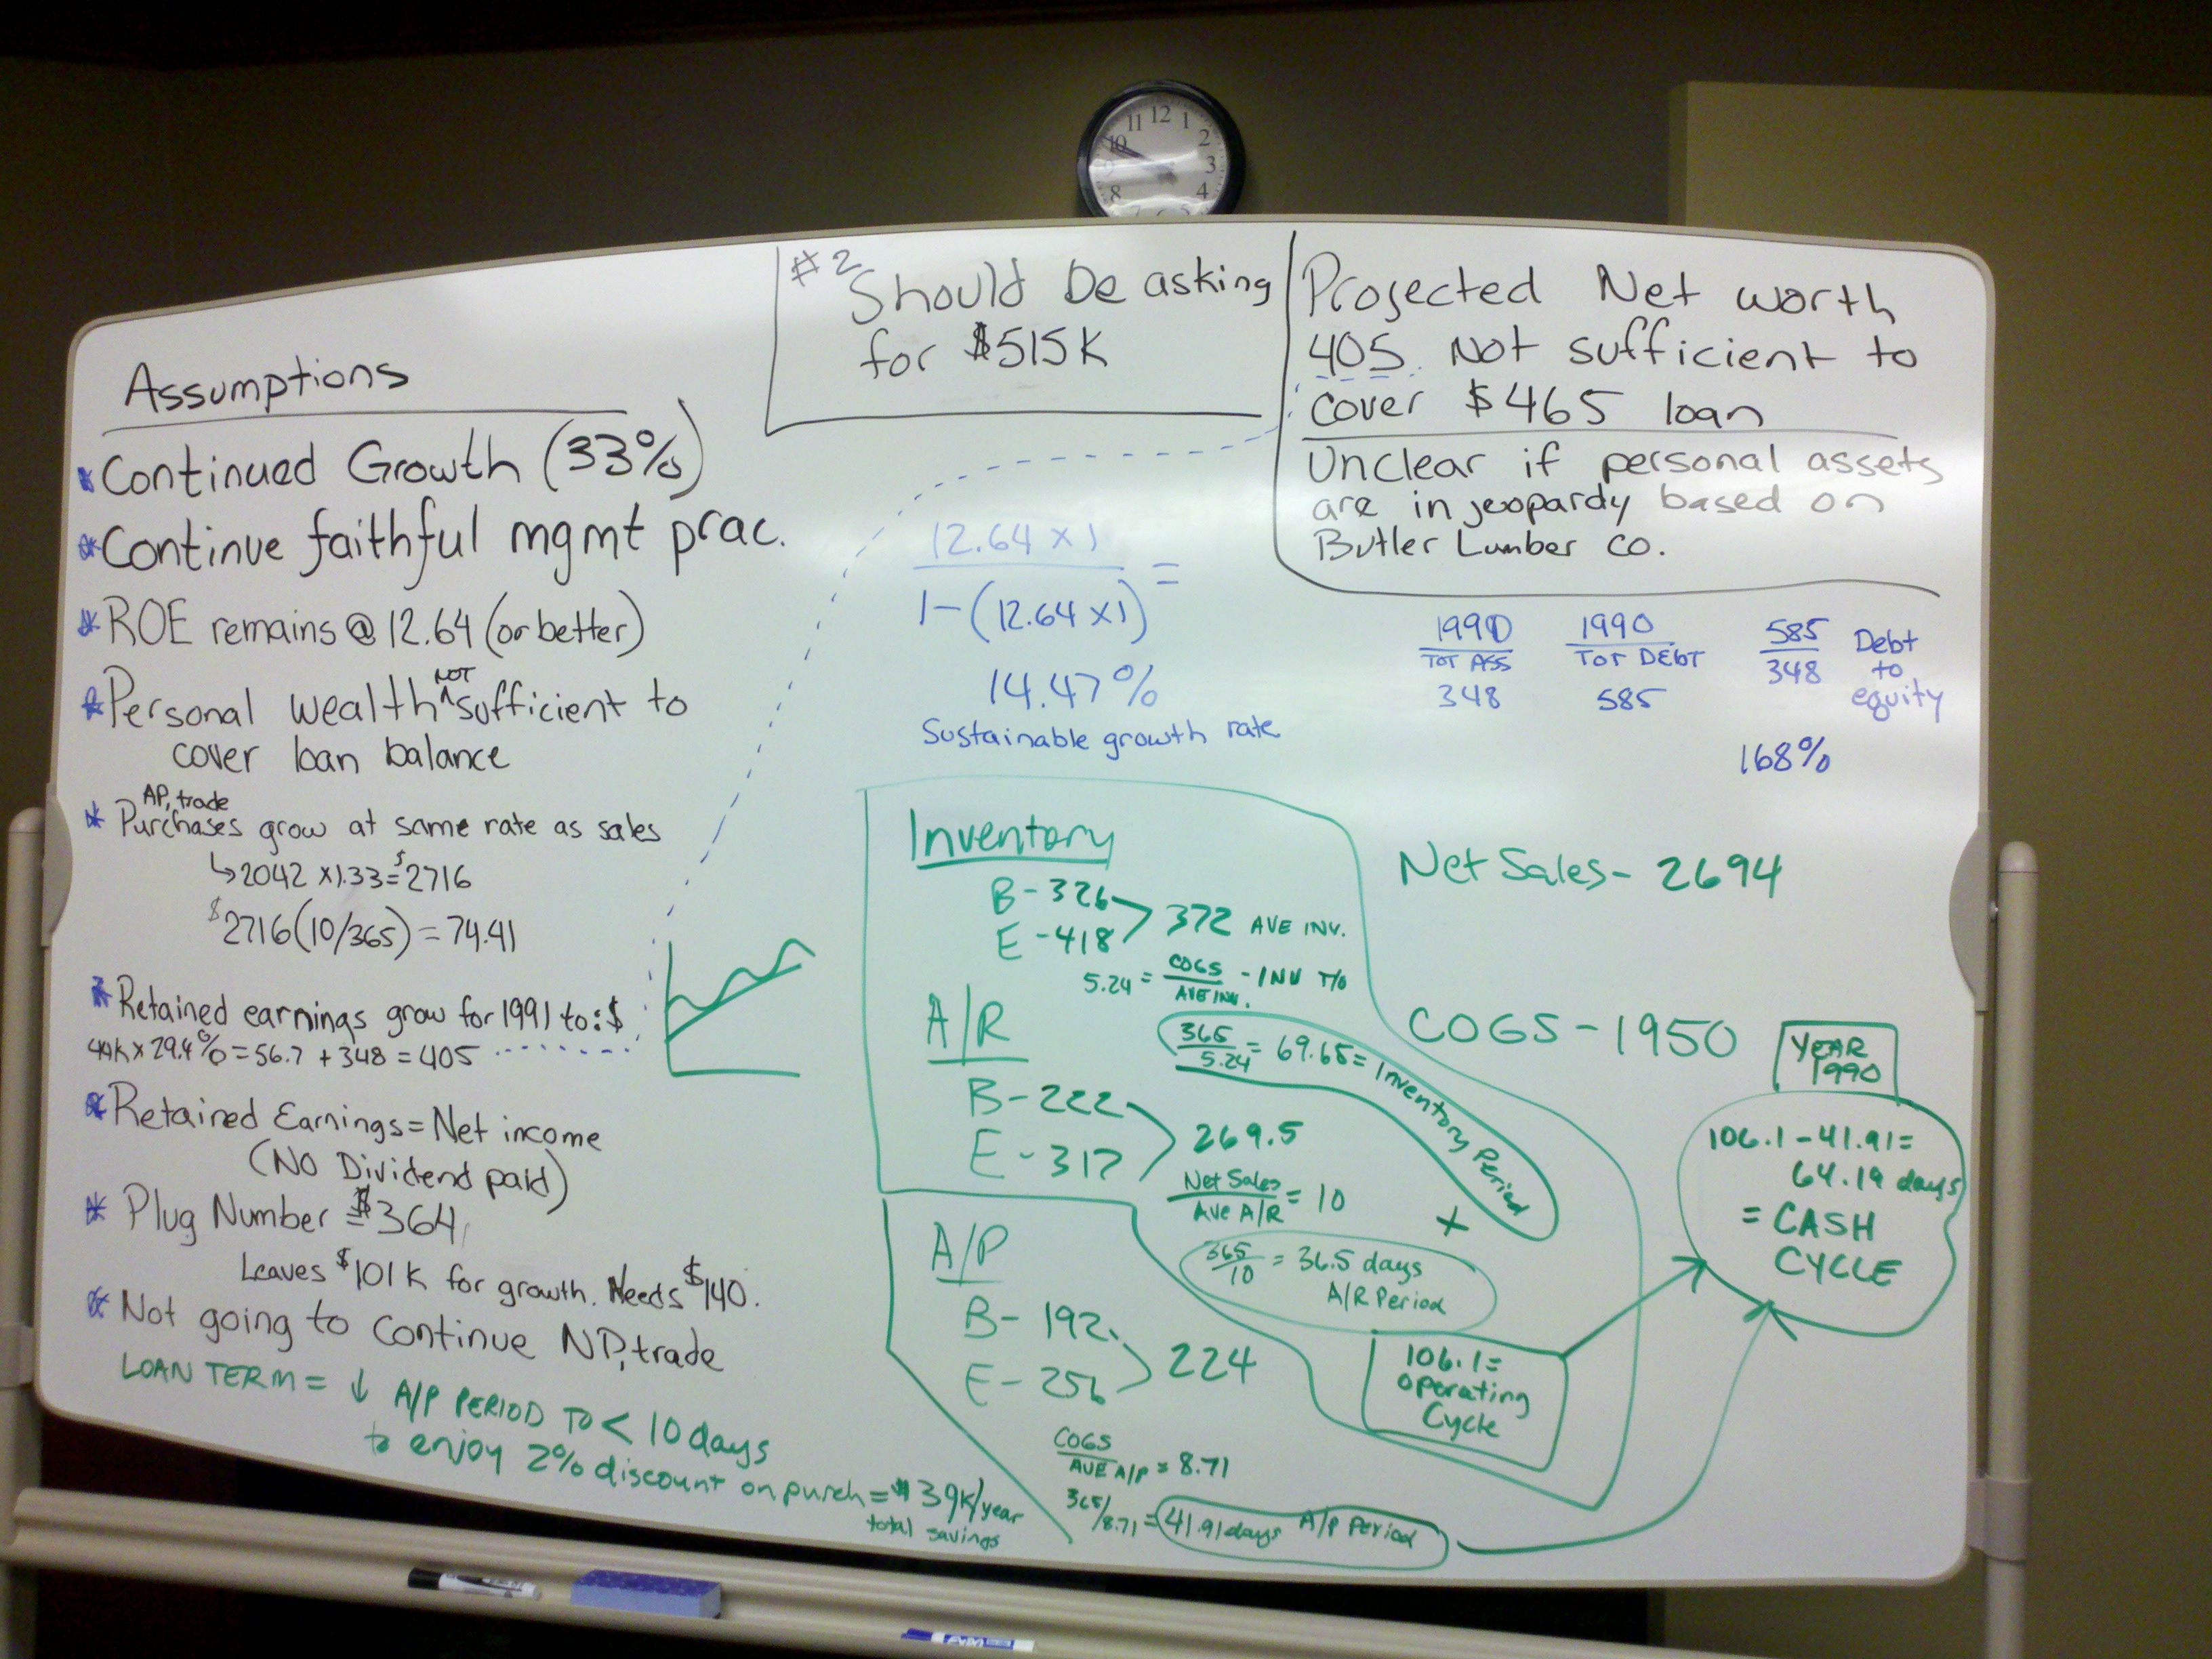 11 12 1
10 2
9 3
8 4
7 6 5
Assumptions
* Continued Growth (33%)
* Continue faithful mgmt prac.
* ROE remains @ 12.64 (or better)
* Personal wealth NOT sufficient to
cover loan balance
AP, trade
* Purchases grow at same rate as sales
↳ 2042 x 1.33 = $2716
$2716 (10/365) = 74.41
* Retained earnings grow for 1991 to: $
44K x 29.4% = 56.7 + 348 = 405
* Retained Earnings = Net income
(No Dividend paid)
* Plug Number = $364
Leaves $101K for growth. Needs $140.
* Not going to continue NP, trade
LOAN TERM = ↓ A/P PERIOD TO < 10 days
to enjoy 2% discount on purch = $39K/year
total savings
#2 Should be asking
for $515K
Projected Net worth
405. Not sufficient to
cover $465 loan
Unclear if personal assets
are in jeopardy based on
Butler Lumber Co.
12.64 x 1
1-(12.64 x 1) =
14.47%
Sustainable growth rate
1990 1990 585 Debt
TOT ASS TOT DEBT 348 to
348 585 equity
168%
Inventory
B-326
E-418 > 372 AVE INV.
5.24 = COGS / AVE INV. - INV T/O
365/5.24 = 69.65 = Inventory Period
A/R
B-222
E-317 > 269.5
Net Sales / Ave A/R = 10
+
365/10 = 36.5 days
A/R Period
106.1 =
Operating
Cycle
A/P
B-192
E-256 > 224
COGS / AVE A/P = 8.71
365/8.71 = 41.91 days A/P Period
Net Sales - 2694
COGS - 1950
YEAR
1990
106.1 - 41.91 =
64.19 days
= CASH
CYCLE